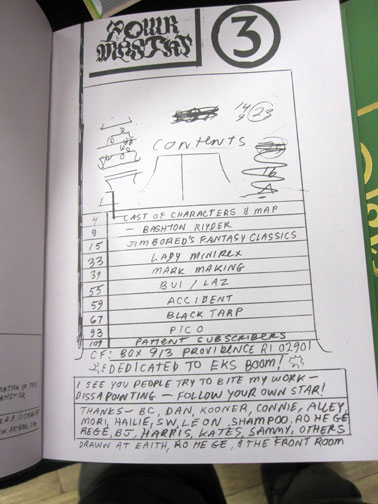 POWR
MASTRS
3
14
9 23
CONTENTS
4 CAST OF CHARACTERS & MAP
9 — BASHTON RIYDER
15 JIM BORED'S FANTASY CLASSICS
33 LADY MINIREX
39 MARK MAKING
55 BUI / LAZ
59 ACCIDENT
67 BLACK TARP
93 PICO
109 PATIENT SUBSCRIBERS
CF: BOX 913 PROVIDENCE RI 02901
DEDICATED TO EKS BOOM!
I SEE YOU PEOPLE TRY TO BITE MY WORK —
DISSAPOINTING — FOLLOW YOUR OWN STAR!
THANKS — BC, DAN, KOONER, CONNIE, ALLEY,
MORI, HAILIE, SW, LEON, SHAMPOO, RO HE GE
REGE, BJ, HARRIS, KATES, SAMMY, OTHERS
DRAWN AT EAITH, RO HE GE, & THE FRONT ROOM